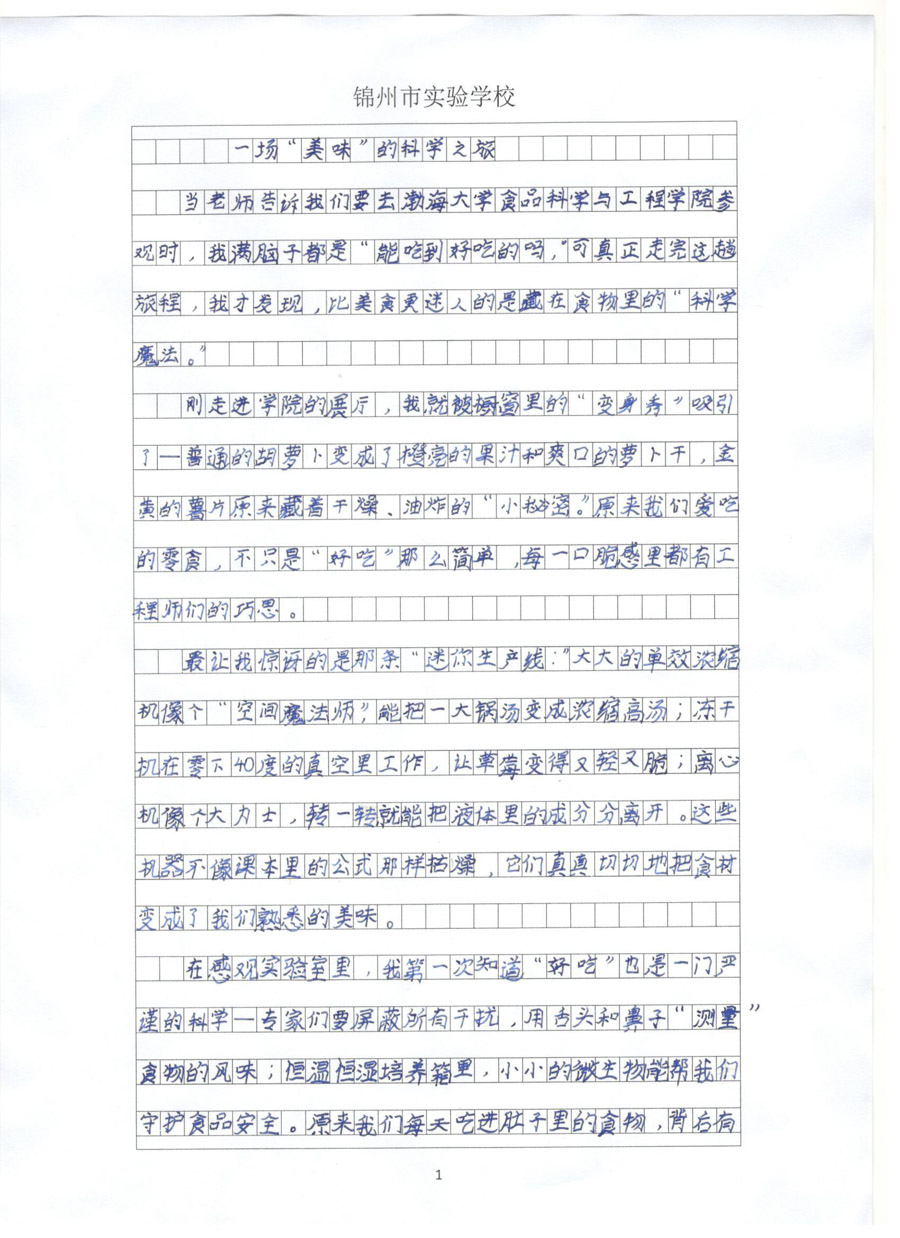 锦州市实验学校
一场“美味”的科学之旅
当老师告诉我们要去渤海大学食品科学与工程学院参
观时，我满脑子都是“能吃到好吃的吗，”可真正走完这趟
旅程，我才发现，比美食更迷人的是藏在食物里的“科学
魔法。”
刚走进学院的展厅，我就被橱窗里的“变身秀”吸引
了—普通的胡萝卜变成了橙亮的果汁和爽口的萝卜干，金
黄的薯片原来藏着干燥、油炸的“小秘密。”原来我们爱吃
的零食，不只是“好吃”那么简单，每一口脆感里都有工
程师们的巧思。
最让我惊讶的是那条“迷你生产线：”大大的单效浓缩
机像个“空间魔法师”，能把一大锅汤变成浓缩高汤；冻干
机在零下40度的真空里工作，让草莓变得又轻又脆；离心
机像个大力士，转一转就能把液体里的成分分离开。这些
机器不像课本里的公式那样枯燥，它们真真切切地把食材
变成了我们熟悉的美味。
在感观实验室里，我第一次知道“好吃”也是一门严
谨的科学—专家们要屏蔽所有干扰，用舌头和鼻子“测量”
食物的风味；恒温恒湿培养箱里，小小的微生物能帮我们
守护食品安全。原来我们每天吃进肚子里的食物，背后有
1